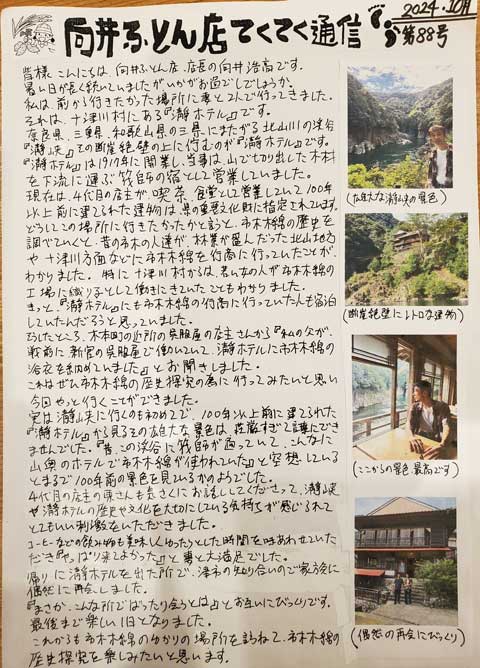 2024.10月
向井ふとん店てくてく通信
第88号
皆様こんにちは、向井ふとん店、店長の向井浩高です。
暑い日が長く続いていましたがいかがお過ごしでしょうか。
私は、前から行きたかった場所に妻と2人で行ってきました。
それは、十津川村にある『瀞ホテル』です。
奈良県、三重県、和歌山県の三県にまたがる北山川の渓谷
『瀞峡』、その断崖絶壁の上に佇むのが『瀞ホテル』です。
『瀞ホテル』は1917年に開業し、当事は、山でむかり出した木材
を下流に運ぶ筏師の宿として営業していました。
現在は、4代目の店主が、喫茶、食堂として営業していて100年
以上前に建てられた建物は県の重要文化財に指定されています。
どうしてこの場所に行きたかったかと言うと、市木木綿の歴史を
調べていくと、昔の市木の人達が、林業が盛んだった北山地方
や十津川方面などに市木木綿を行商に行っていたことが
わかりました。特に十津川村からは、若い女の人が市木木綿の
工場に織り子として働きにきていたこともわかりました。
きっと、『瀞ホテル』にも市木木綿の行商に行っていた人も宿泊
していたんだろうと思っていました。
そうしたところ、木本町の近所の呉服屋の店主さんから『私の父が、
戦前に新宮の呉服屋で働いていて、瀞ホテルに市木木綿の
浴衣を納めていました』とお聞きしました。
これはぜひ市木木綿の歴史探究の為に行ってみたいと思い
今回やっと行くことができました。
実は瀞峡に行くのも初めてで、100年以上前に建てられた
『瀞ホテル』から見るその雄大な景色は、荘厳すぎて言葉にでき
ませんでした。『昔、この渓谷に筏師が通っていて、こんなに
山奥のホテルで市木木綿が使われていた』と空想している
とまるで100年前の景色を見ているかのようでした。
4代目の店主の東さんも気さくにお話ししてくださって、瀞峡
や瀞ホテルの歴史や文化を大切にしている気持ちが感じられて
とてもいい刺激をいただきました。
コーヒーなどの飲み物も美味しくゆったりとした時間を味あわせていた
だき『やっぱり来てよかった』と妻と大満足でした。
帰りに瀞ホテルを出た所で、津市の知り合いのご家族に
偶然に再会しました。
『まさか、こんな所でばったり会うとは』とお互いにびっくりです。
最後まで楽しい1日となりました。
これからも市木木綿のゆかりの場所を訪ねて、市木木綿の
歴史探究を楽しみたいと思います。
(雄大な瀞峡の景色)
(断崖絶壁にレトロな建物)
(ここからの景色最高です)
(偶然の再会にびっくり)